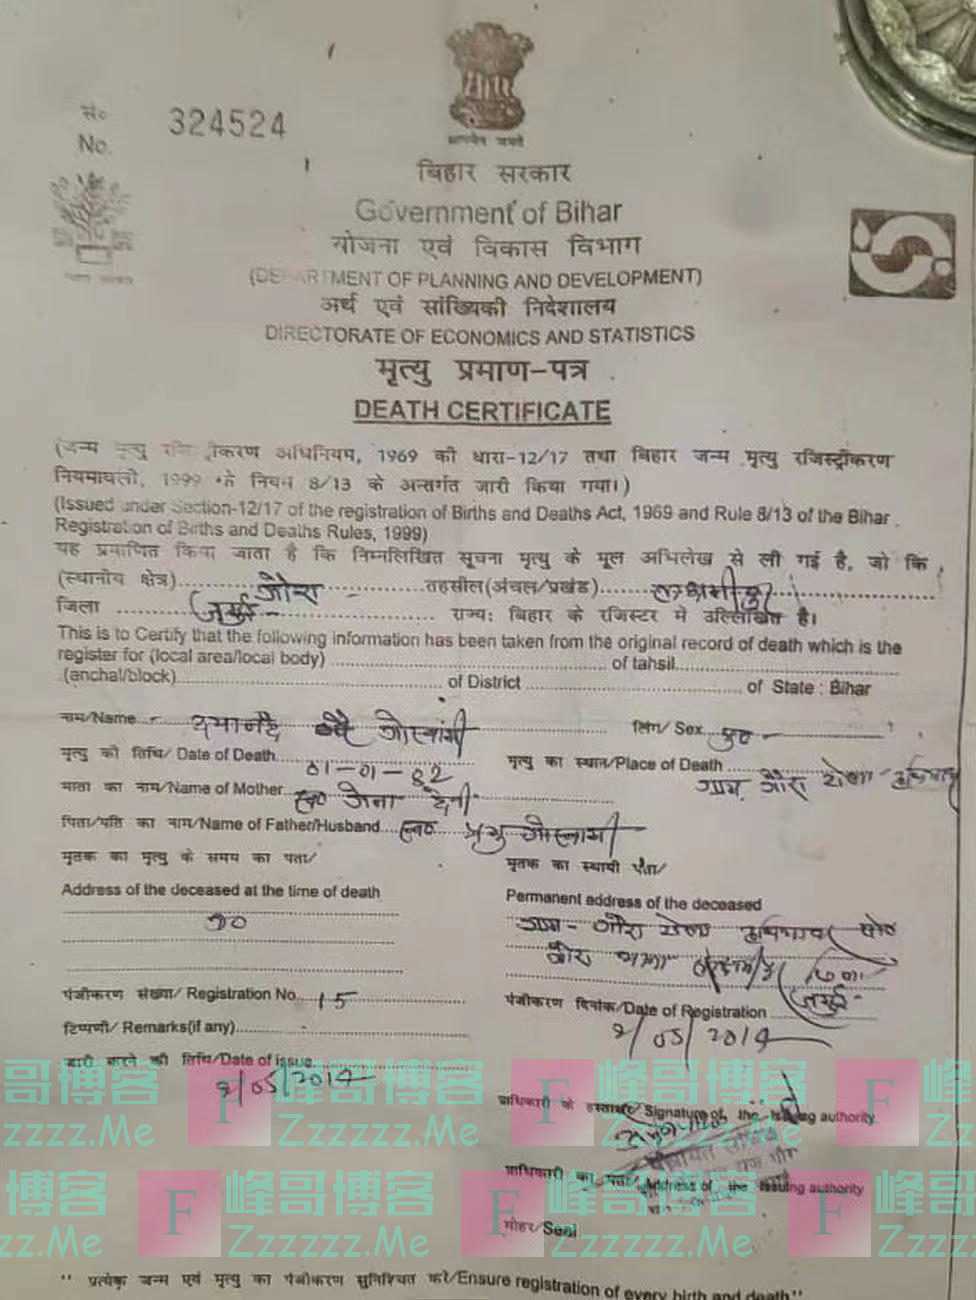 सं०
No. 324524
सत्यमेव जयते
बिहार सरकार
Government of Bihar
योजना एवं विकास विभाग
(DEPARTMENT OF PLANNING AND DEVELOPMENT)
अर्थ एवं सांख्यिकी निदेशालय
DIRECTORATE OF ECONOMICS AND STATISTICS
मृत्यु प्रमाण-पत्र
DEATH CERTIFICATE
(जन्म मृत्यु रजिस्ट्रीकरण अधिनियम, 1969 की धारा-12/17 तथा बिहार जन्म मृत्यु रजिस्ट्रीकरण
नियमावली, 1999 के नियम 8/13 के अन्तर्गत जारी किया गया।)
(Issued under Section-12/17 of the registration of Births and Deaths Act, 1969 and Rule 8/13 of the Bihar
Registration of Births and Deaths Rules, 1999)
यह प्रमाणित किया जाता है कि निम्नलिखित सूचना मृत्यु के मूल अभिलेख से ली गई है, जो कि
(स्थानीय क्षेत्र) गौरा तहसील(अंचल/प्रखंड)
जिला जमुई राज्य: बिहार के रजिस्टर में उल्लिखित है।
This is to Certify that the following information has been taken from the original record of death which is the
register for (local area/local body) of tahsil
(anchal/block) of District of State : Bihar
नाम/Name गोस्वामी लिंग/ Sex पु०
मृत्यु की तिथि/ Date of Death 01-01-82 मृत्यु का स्थान/Place of Death ग्राम
माता का नाम/Name of Mother स्व० देवी
पिता/पति का नाम/Name of Father/Husband स्व० गोस्वामी
मृतक का मृत्यु के समय का पता/ मृतक का स्थायी पता/
Address of the deceased at the time of death Permanent address of the deceased
ग्राम-
जमुई
पंजीकरण संख्या/ Registration No. 15 पंजीकरण दिनांक/Date of Registration
2/05/2014
टिप्पणी/ Remarks(if any)
जारी करने की तिथि/Date of issue 2/05/2014
प्राधिकारी के हस्ताक्षर/ Signature of the issuing authority
पंचायत सचिव
प्राधिकारी का पता/ Address of the issuing authority
मोहर/Seal
" प्रत्येक जन्म एवं मृत्यु का पंजीकरण सुनिश्चित करें/Ensure registration of every birth and death"
哥博客 F 峰哥博客 F 峰哥博客
zzzzz.Me Zzzzzzz.Me Zzzzzz
博客 F 峰哥博客 F 峰哥博客 F 峰哥
zz.Me Zzzzzz.Me Zzzzzz.Me Zzzz